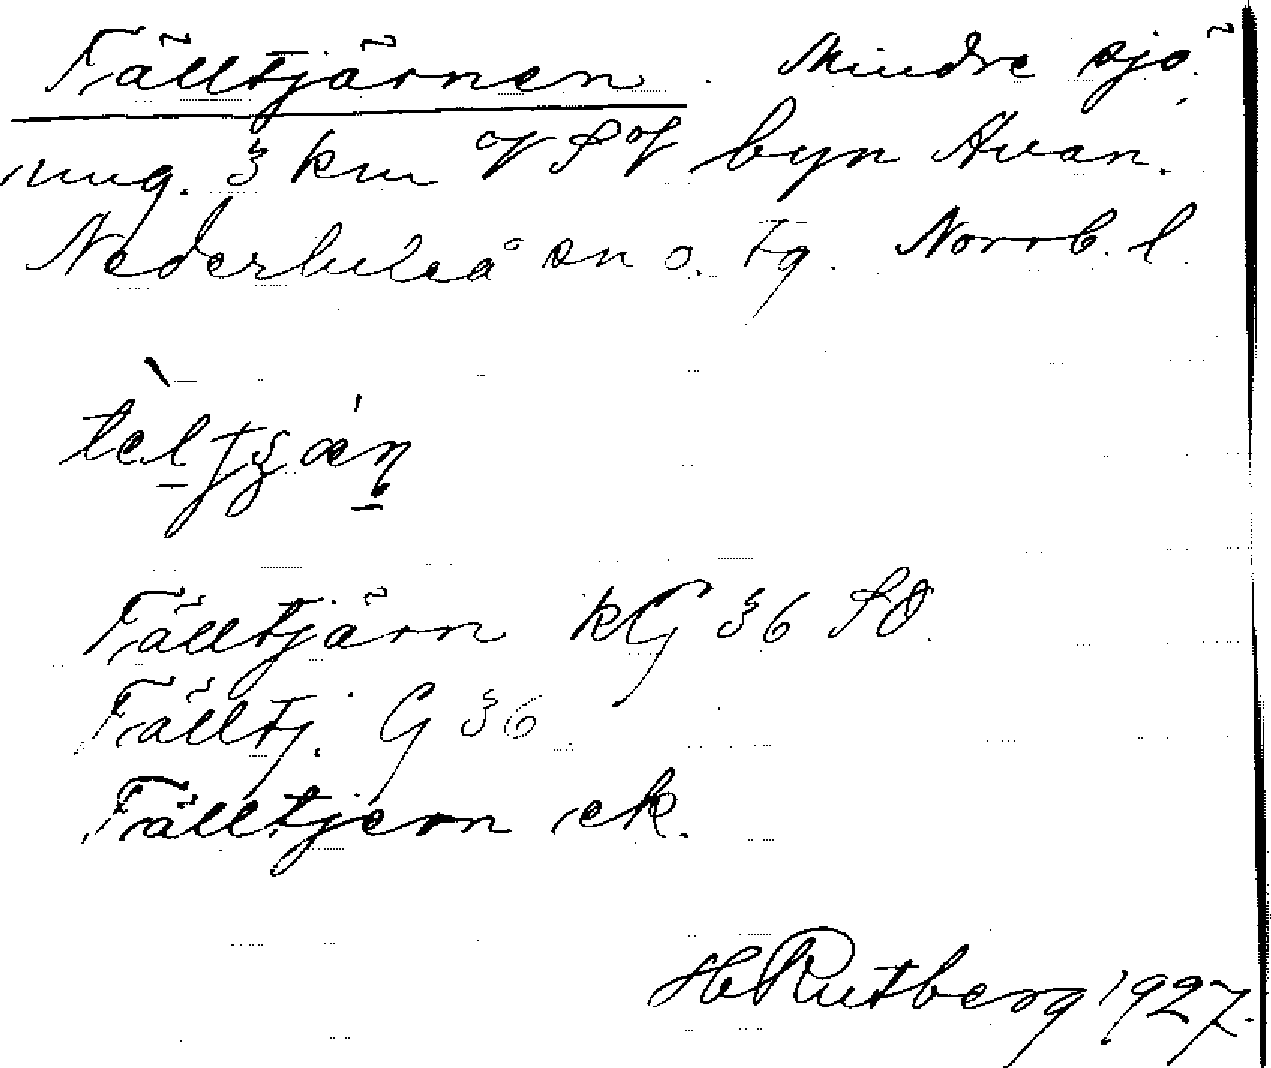 Fälltjärnen. Mindre sjö
ung. 3 km byn Avan.
Nederluleå sn o. tg. Norrb. l.
Fälltjärn kG 36 SO.
Fälltj. G 36
Fälltjern ek.
H Rutberg 1927.